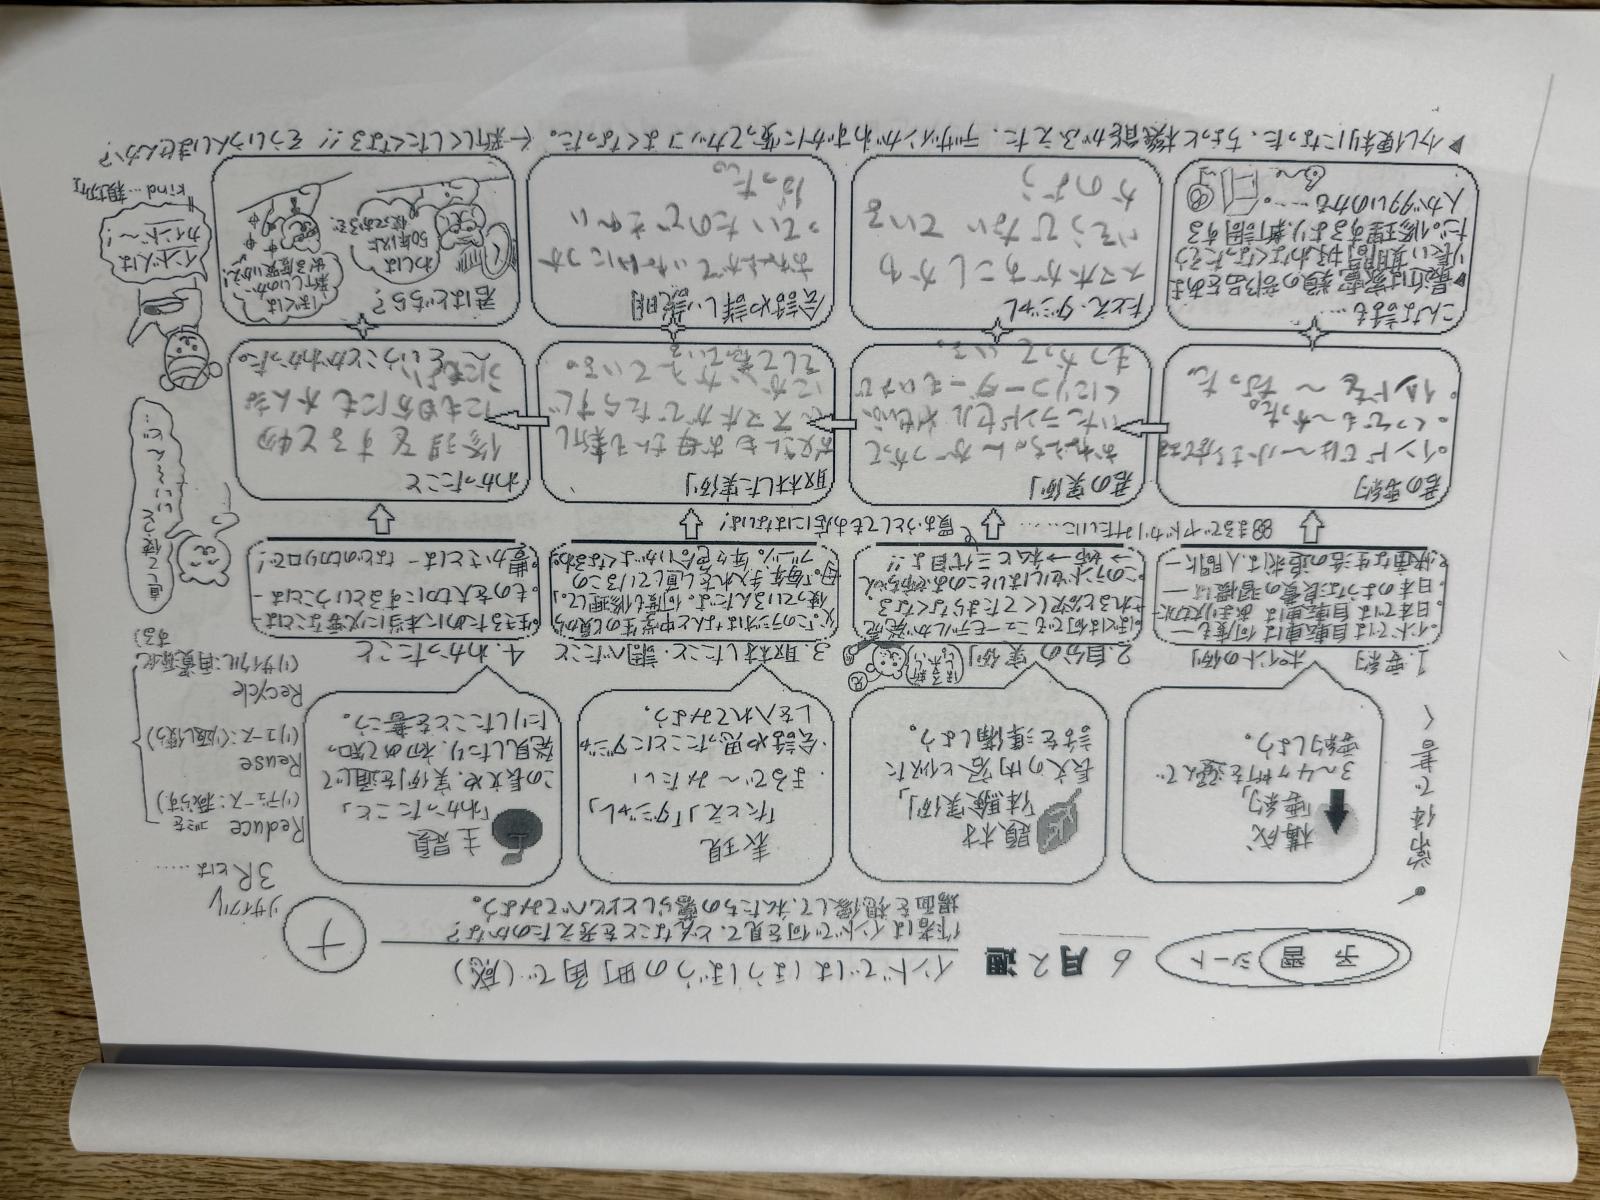 予習シート
6月2週
インドではほうぼうの町角で(感)
作者はインドで何を見て、どんなことを考えたのかな?
場面を想像して、私たちの暮らしとくらべてみよう。
ナ
・常体で書く
構成
「要約」
3~4ヶ所を選んで
要約しよう。
題材
「体験実例」
長文の内容と似た
話を準備しよう。
表現
「たとえ」「ダジャレ」
・まるで~みたい
・会話や思ったことにダジャ
レを入れてみよう。
主題
「わかったこと」
この長文や、実例を通じて
発見したり、初めて知っ
たりしたことを書こう。
リサイクル
3Rとは……
Reduce ゴミを
(リデュース:減らす)
Reuse
(リユース:くり返し使う)
Recycle
(リサイクル:再資源化
する)
1. 要約 ポイントの例
・インドでは自転車は何度も―
・日本では自転車は
・日本のような良質の習慣は―
・快適な生活の追求は人間に―
2. 自分の実例
兄
・ぼくは何でもニューモデルが発売
されると欲しくてたまらなくなる
・このランドセルはいとこのお姉ちゃん
→姉→私と三代目よ!!
3. 取材したこと・調べたこと
父「このラジオはなんと中学生の頃から
使っているんだよ。何度も修理して。」
母「毎年手入れをし直しているこの
4. わかったこと
・生きるために本当に必要なことは
・ものを大切にするということは―
・豊かさとは― などの切り口で!
まるでヤドカリみたいに……
買おうとしてもお店にはないよ!
君の要約
・インドでは~小さな
・くつでも~かった。
・インドを~だった。
君の実例
おねえちゃんがつかって
いたランドセルや
くにリコーダーもいまで
もつかっている。
取材した実例
お父さんもお母さんも新し
いスマホがでたらすぐ
にかいかえている。
そして
わかったこと
修理をすると物
にも自分にもかんきょ
うにもよいということがわかった。
こんな話も……
▶最近は家電類の部品をあま
り長い期間
だ。修理するより、新調する
人が多いのかな……。
たとえ・ダジャレ
スマホがあこしがわ
いそうでないている
かのよう
会話や詳しい説明
おねえがていねいにつか
っていたのできれい
だった。
君はどちら?
わしは
50年以上
使っておるぞ!
ぼくは
新しいのが
出る度買いかえ!
▶少し便利になった、ちょっと機能がふえた、デザインがわずかに変ってカッコよくなった。← 新しくしたくなる!! そういう人いませんか?
直して使って
インド人は
カインド~!
kind…親切な